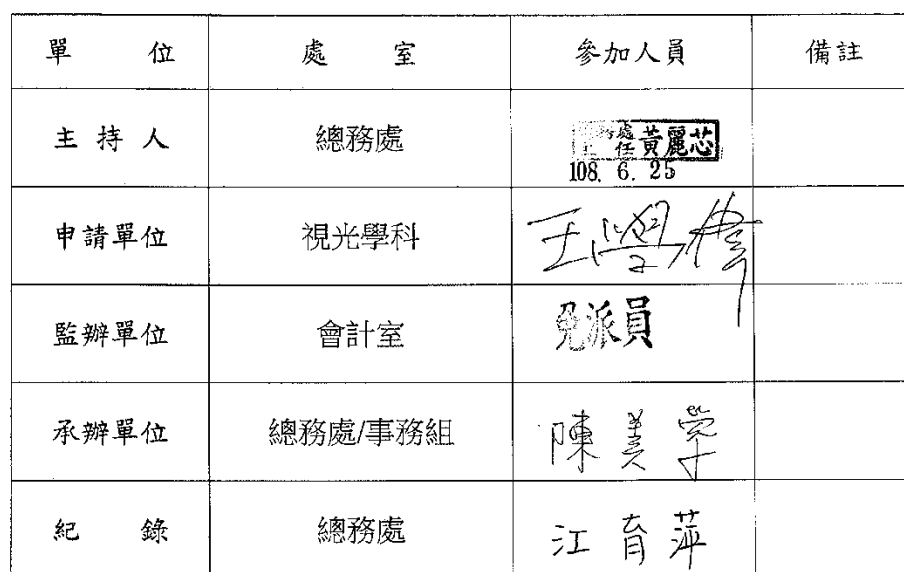 單 位 處 室 參加人員 備註
主 持 人 總務處 總務處 主任 黃麗芯
108. 6. 25
申請單位 視光學科 王學偉
監辦單位 會計室 免派員
承辦單位 總務處/事務組 陳美
紀 錄 總務處 江育萍